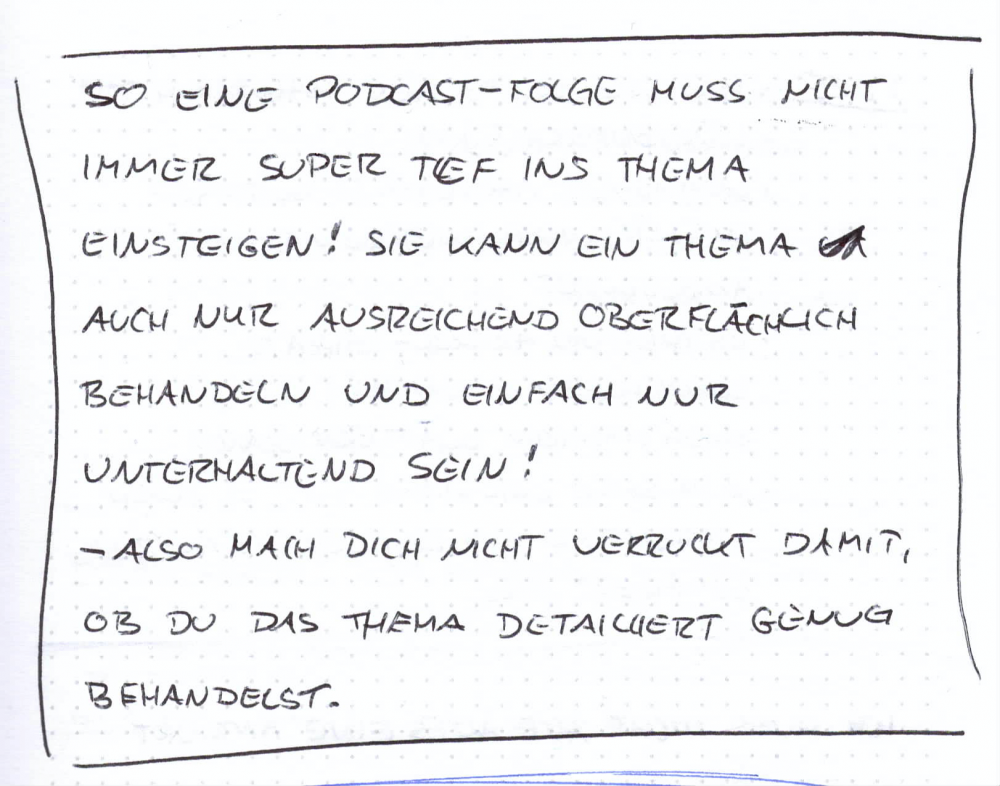 SO EINE PODCAST-FOLGE MUSS NICHT
IMMER SUPER TIEF INS THEMA
EINSTEIGEN! SIE KANN EIN THEMA
AUCH NUR AUSREICHEND OBERFLÄCHLICH
BEHANDELN UND EINFACH NUR
UNTERHALTEND SEIN!
- ALSO MACH DICH NICHT VERRÜCKT DAMIT,
OB DU DAS THEMA DETAILLIERT GENUG
BEHANDELST.